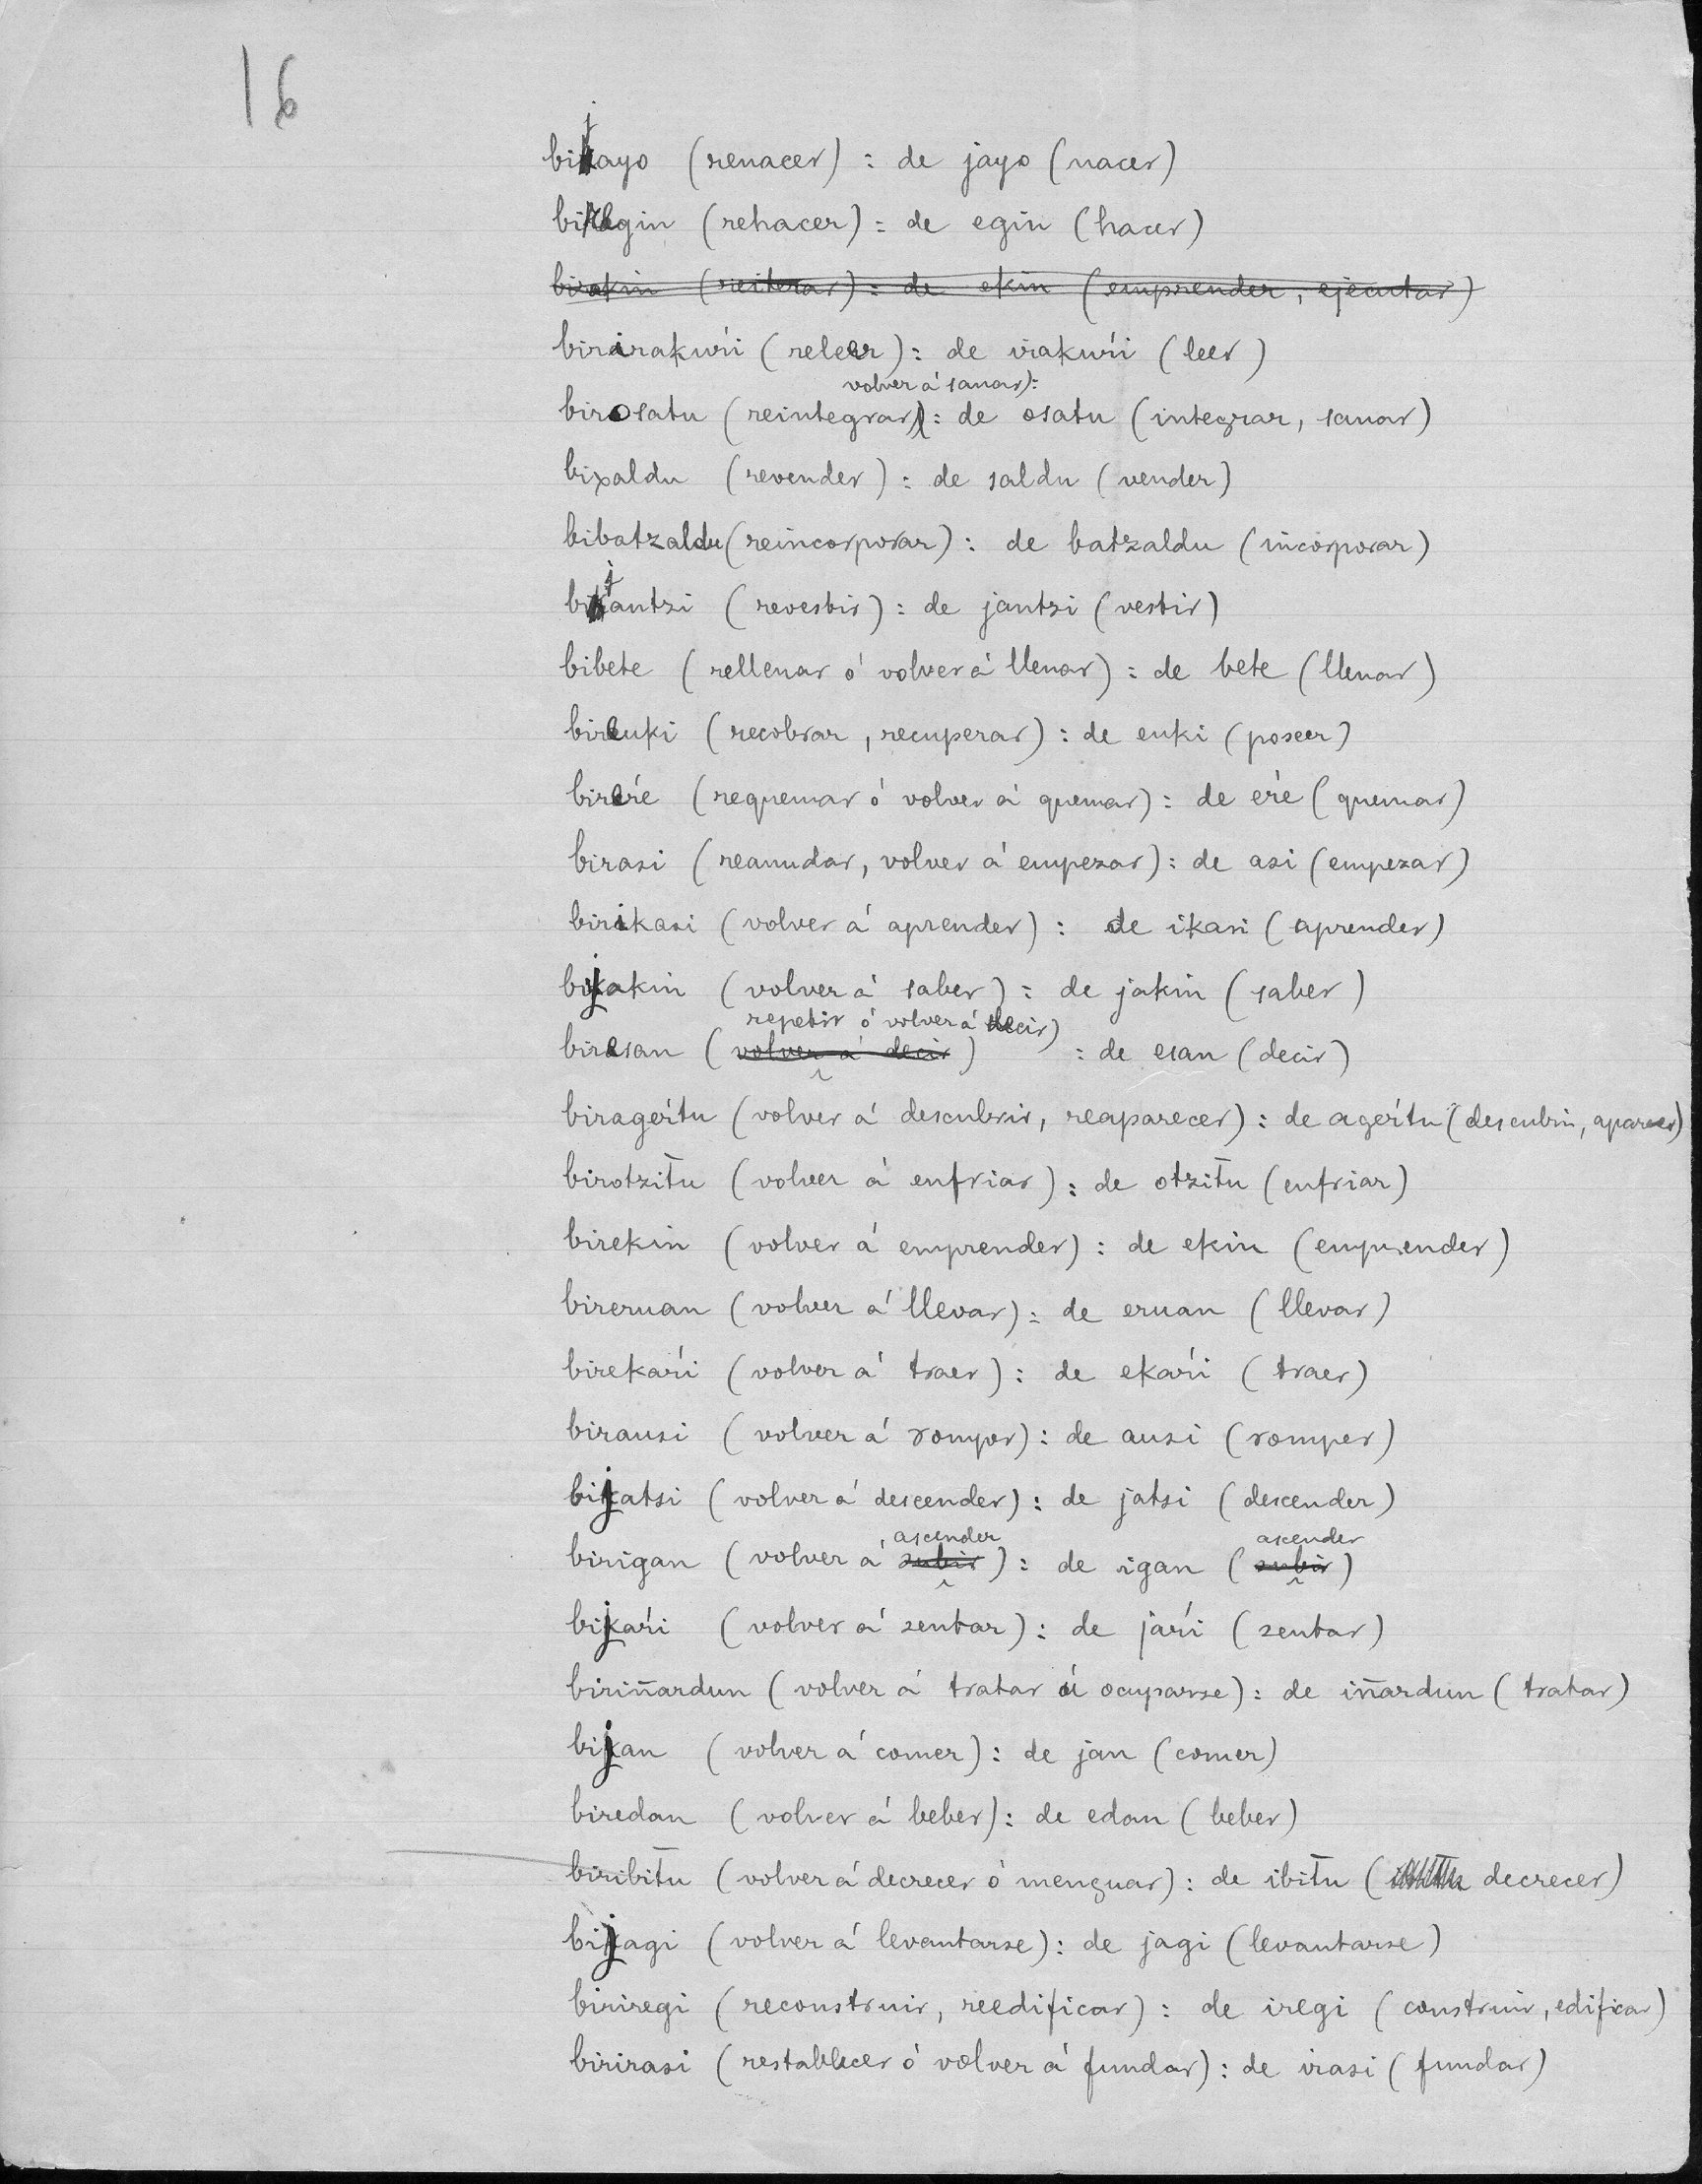 16
bijayo (renacer) : de jayo (nacer)
biregin (rehacer) : de egin (hacer)
birakin (reiterar) : de ekin (emprender, ejecutar)
birirakuŕi (releer) : de irakuŕi (leer)
volver á sanar):
birosatu (reintegrar): de osatu (integrar, sanar)
bixaldu (revender) : de saldu (vender)
bibatzaldu (reincorporar) : de batzaldu (incorporar)
bijantzi (revestir) : de jantzi (vestir)
bibete (rellenar ó volver á llenar) : de bete (llenar)
bireuki (recobrar, recuperar) : de euki (poseer)
bireŕe (requemar ó volver á quemar) : de eŕe (quemar)
birasi (reanudar, volver á empezar) : de asi (empezar)
birikasi (volver á aprender) : de ikasi (aprender)
bijakin (volver á saber) : de jakin (saber)
repetir ó volver á decir)
biresan (volver á decir) : de esan (decir)
birageŕtu (volver á descubrir, reaparecer) : de ageŕtu (descubrir, aparecer)
birotzit̄u (volver á enfriar) : de otzit̄u (enfriar)
birekin (volver á emprender) : de ekin (emprender)
bireruan (volver á llevar) : de eruan (llevar)
birekaŕi (volver á traer) : de ekaŕi (traer)
birausi (volver á romper) : de ausi (romper)
bijatsi (volver á descender) : de jatsi (descender)
ascender ascender
birigan (volver á subir) : de igan (subir)
bijaŕi (volver á sentar) : de jaŕi (sentar)
biriñardun (volver á tratar ú ocuparse) : de iñardun (tratar)
bijan (volver á comer) : de jan (comer)
biredan (volver á beber) : de edan (beber)
biribit̄u (volver á decrecer ó menguar) : de ibit̄u (decrecer)
bijagi (volver á levantarse) : de jagi (levantarse)
biriregi (reconstruir, reedificar) : de iregi (construir, edificar)
birirasi (restablecer ó volver á fundar) : de irasi (fundar)